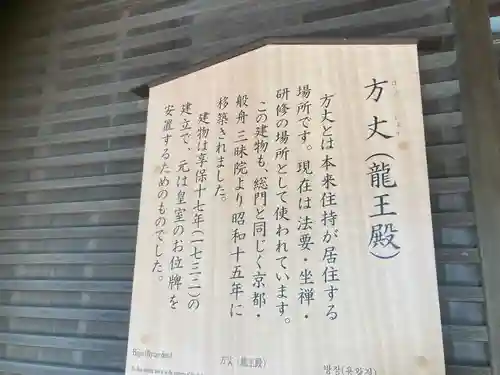 方丈（龍王殿）
ほう じょう
方丈とは本来住持が居住する
場所です。現在は法要・坐禅・
研修の場所として使われています。
この建物も、総門と同じく京都・
般舟三昧院より昭和十五年に
移築されました。
建物は享保十七年（一七三二）の
建立で、元は皇室のお位牌を
安置するためのものでした。
Hojo (Ryuo-den)
方丈（龍王殿）
방장(용왕전)